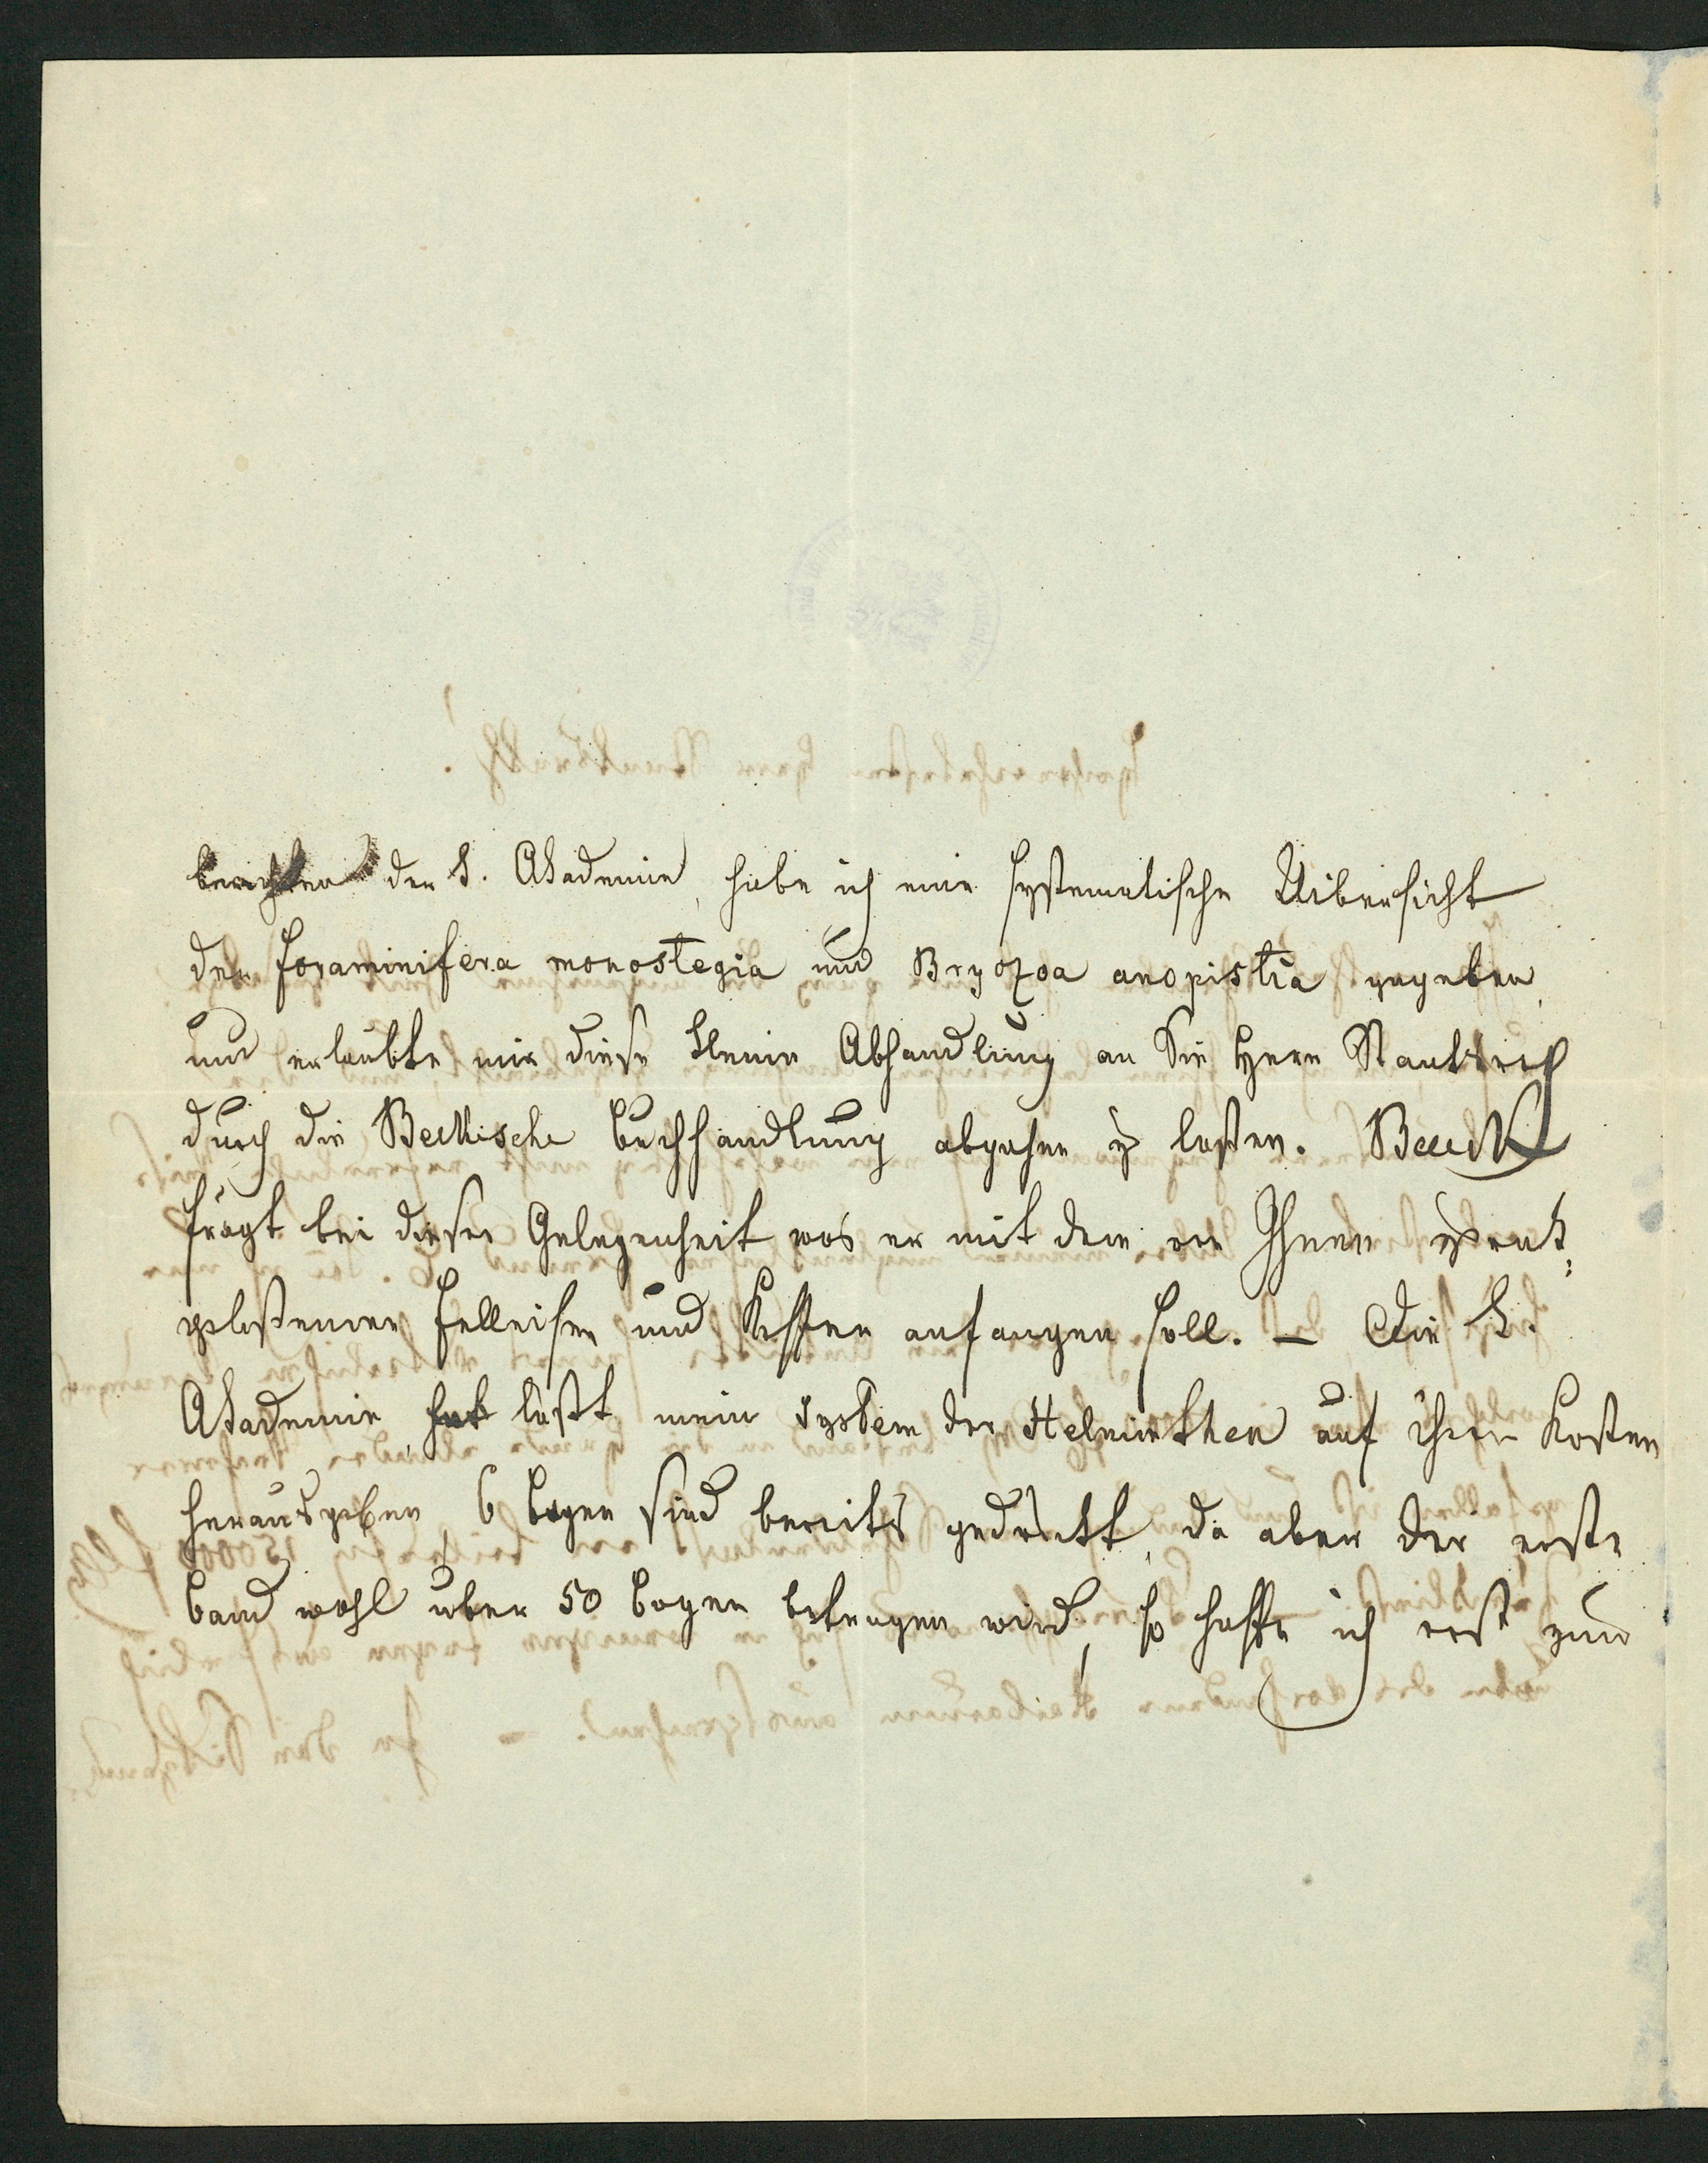 berichten der k. Akademie, habe ich eine systematische Uibersicht
der Foraminifera monostegia und Bryozoa anopistia gegeben,
und erlaubte mir diese kleine Abhandlung an Sie Herr Staatsrath
durch die Beckische Buchhandlung abgehen zu laßen. Beeck
frägt bei dieser Gelegenheit was er mit dem von Ihnen zurük¬
gelaßenen Felleisen und Koffer anfangen soll. — Die k.
Akademie, hat läßt mein System der Helminthen auf ihre Kosten
herausgeben, 6 Bogen sind bereits gedrukt, da aber der erste
Band wohl über 50 Bogen betragen wird, so hoffe ich erst zum